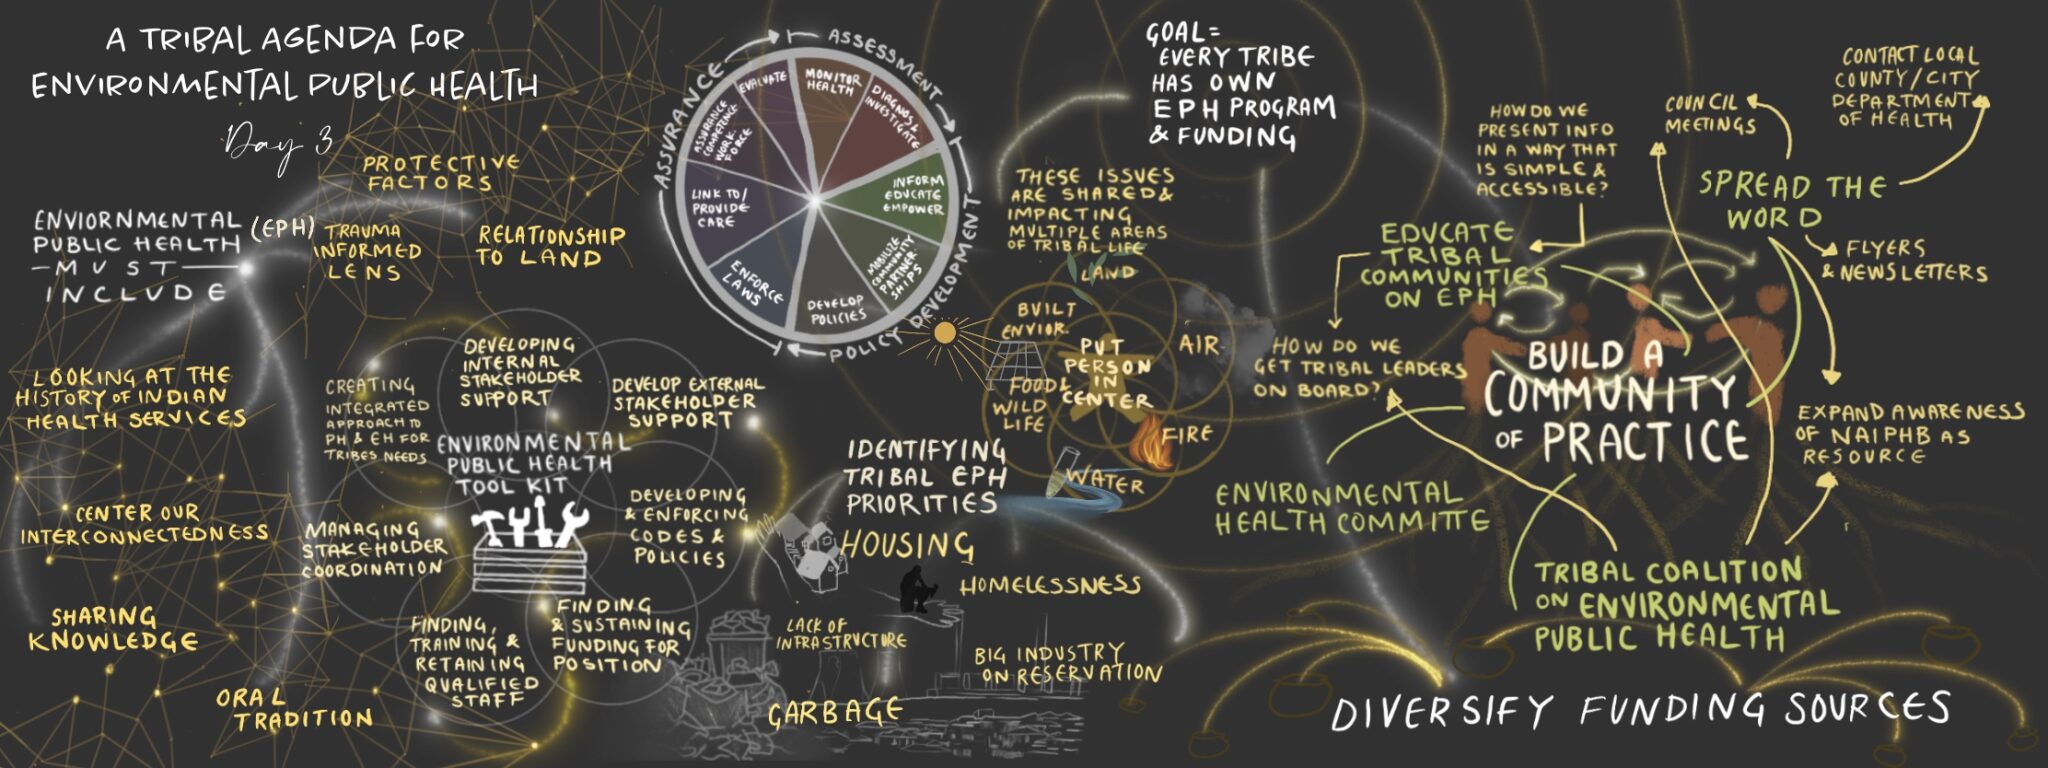 A TRIBAL AGENDA FOR
ENVIRONMENTAL PUBLIC HEALTH
Day 3
ENVIORNMENTAL
PUBLIC HEALTH
(EPH)
MUST
INCLUDE
PROTECTIVE
FACTORS
TRAUMA
INFORMED
LENS
RELATIONSHIP
TO LAND
LOOKING AT THE
HISTORY OF INDIAN
HEALTH SERVICES
CENTER OUR
INTERCONNECTEDNESS
SHARING
KNOWLEDGE
ORAL
TRADITION
ENVIRONMENTAL
PUBLIC HEALTH
TOOL KIT
CREATING
INTEGRATED
APPROACH TO
PH & EH FOR
TRIBES NEEDS
DEVELOPING
INTERNAL
STAKEHOLDER
SUPPORT
DEVELOP EXTERNAL
STAKEHOLDER
SUPPORT
DEVELOPING
& ENFORCING
CODES &
POLICIES
FINDING
& SUSTAINING
FUNDING FOR
POSITION
FINDING,
TRAINING &
RETAINING
QUALIFIED
STAFF
MANAGING
STAKEHOLDER
COORDINATION
ASSESSMENT
POLICY DEVELOPMENT
ASSURANCE
MONITOR
HEALTH
DIAGNOS&
INVESTIGATE
INFORM
EDUCATE
EMPOWER
MOBILIZE
COMMUNITY
PARTNER
SHIPS
DEVELOP
POLICIES
ENFORCE
LAWS
LINK TO/
PROVIDE
CARE
ASSURANCE
COMPETENCE
WORK
FORCE
EVALUATE
GOAL=
EVERY TRIBE
HAS OWN
EPH PROGRAM
& FUNDING
THESE ISSUES
ARE SHARED &
IMPACTING
MULTIPLE AREAS
OF TRIBAL LIFE
LAND
BUILT
ENVIOR.
AIR
PUT
PERSON
IN
CENTER
FOOD &
WILD
LIFE
FIRE
WATER
IDENTIFYING
TRIBAL EPH
PRIORITIES
HOUSING
HOMELESSNESS
LACK OF
INFRASTRUCTURE
BIG INDUSTRY
ON RESERVATION
GARBAGE
HOW DO WE
PRESENT INFO
IN A WAY THAT
IS SIMPLE &
ACCESSIBLE?
EDUCATE
TRIBAL
COMMUNITIES
ON EPH
HOW DO WE
GET TRIBAL LEADERS
ON BOARD?
COUNCIL
MEETINGS
CONTACT LOCAL
COUNTY/CITY
DEPARTMENT
OF HEALTH
SPREAD THE
WORD
FLYERS
& NEWSLETTERS
BUILD A
COMMUNITY
OF PRACTICE
EXPAND AWARENESS
OF NAIPHB AS
RESOURCE
ENVIRONMENTAL
HEALTH COMMITTE
TRIBAL COALITION
ON ENVIRONMENTAL
PUBLIC HEALTH
DIVERSIFY FUNDING SOURCES